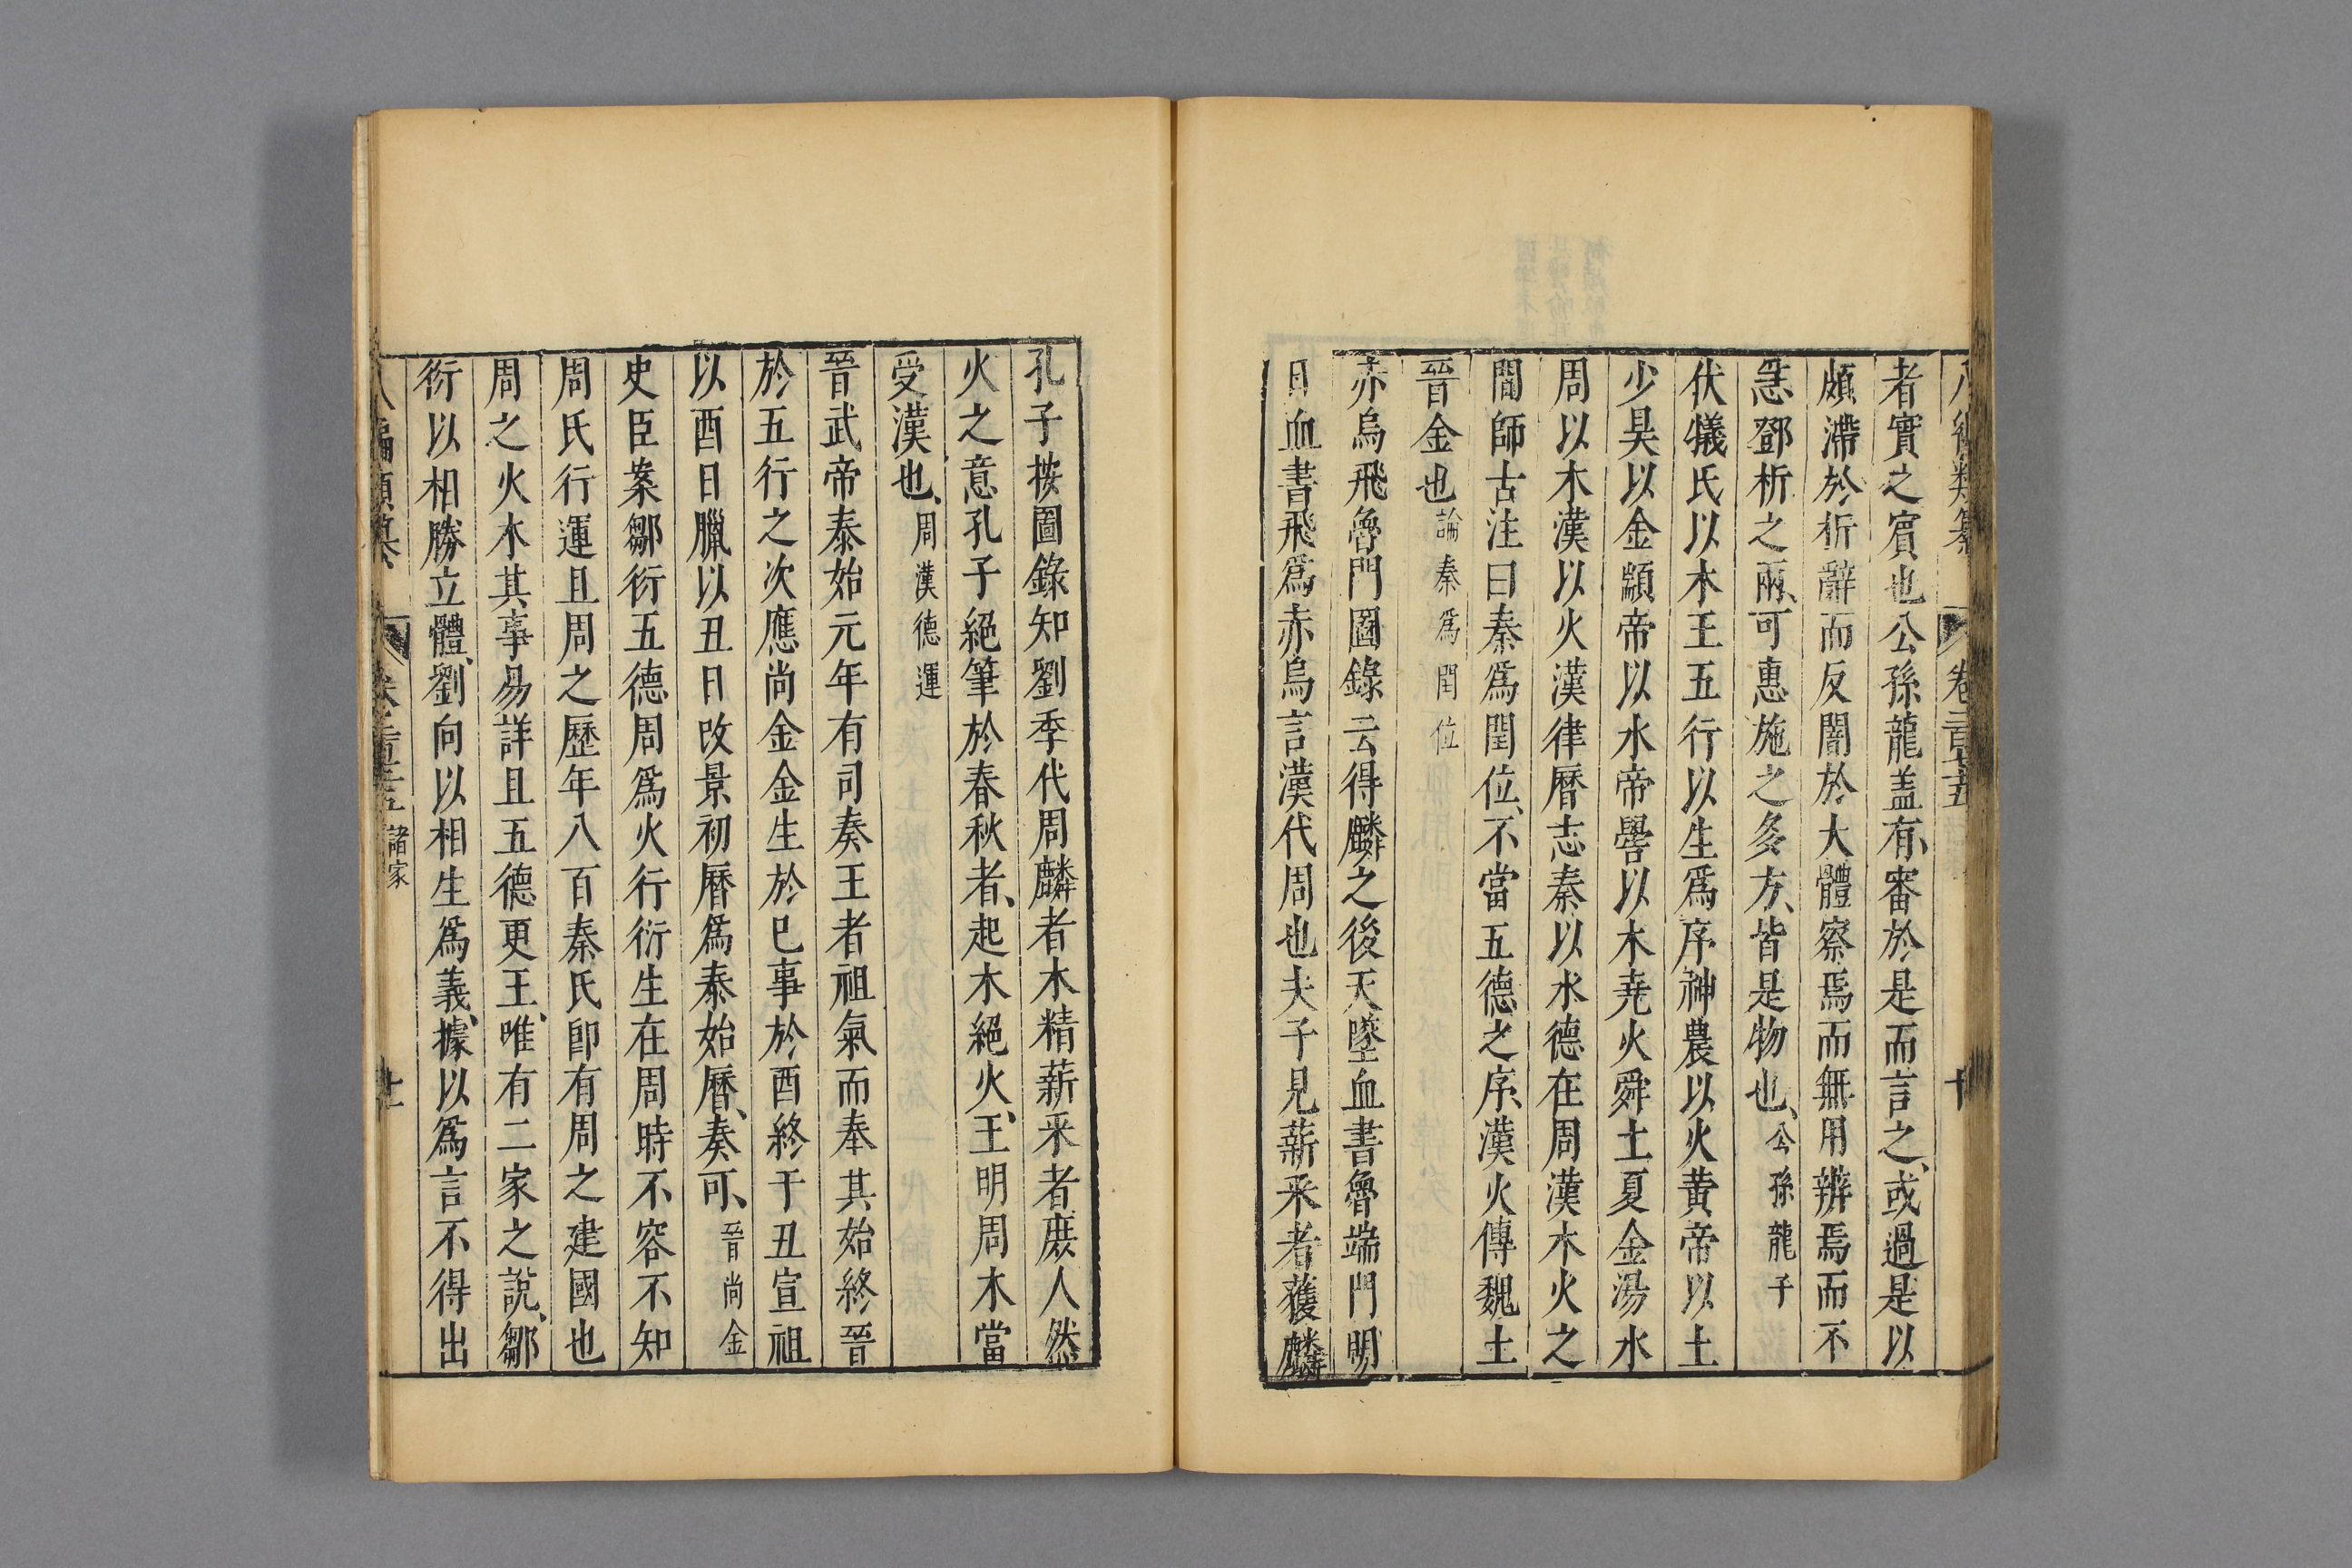 者實之賔也公孫龍盖有審於是而言之或過是以
頗滯於析辭而反闇於大體察焉而無用辨焉而不
急鄧析之兩可惠施之多方皆是物也公孫龍子
伏犧氏以木王五行以生爲序神農以火黄帝以土
少昊以金顓帝以水帝嚳以木尭火舜土夏金湯水
周以木漢以火漢律曆志秦以水德在周漢木火之
間師古注曰秦爲閏位不當五德之序漢火傳魏土
晉金也論秦爲閏位
赤烏飛魯門圖錄云得麟之後天墜血書魯端門明
日血書飛爲赤烏言漢代周也夫子見薪采者獲麟
孔子按圖錄知劉季代周麟者木精薪采者庶人然
火之意孔子絕筆於春秋者起木絕火王明周木當
受漢也周漢德運
晉武帝泰始元年有司奏王者祖氣而奉其始終晉
於五行之次應尚金金生於巳事於酉終于丑宣祖
以酉日臘以丑日改景初曆爲泰始曆奏可晉尚金
史臣案鄒衍五德周爲火行衍生在周時不容不知
周氏行運且周之歷年八百秦氏卽有周之建國也
周之火木其事易詳且五德更王唯有二家之說鄒
衍以相勝立體劉向以相生爲義據以爲言不得出
諸家